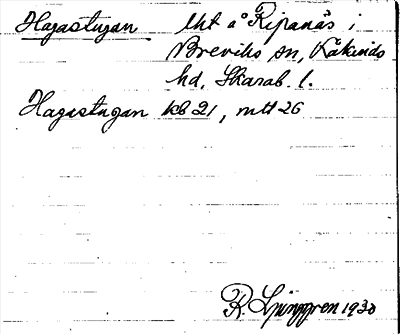 Hagastugan lht å Ripanäs i
Breviks sn, Kåkinds
hd, Skarab. l.
Hagastugan kb 21, mtl 26
R. Ljunggren 1930